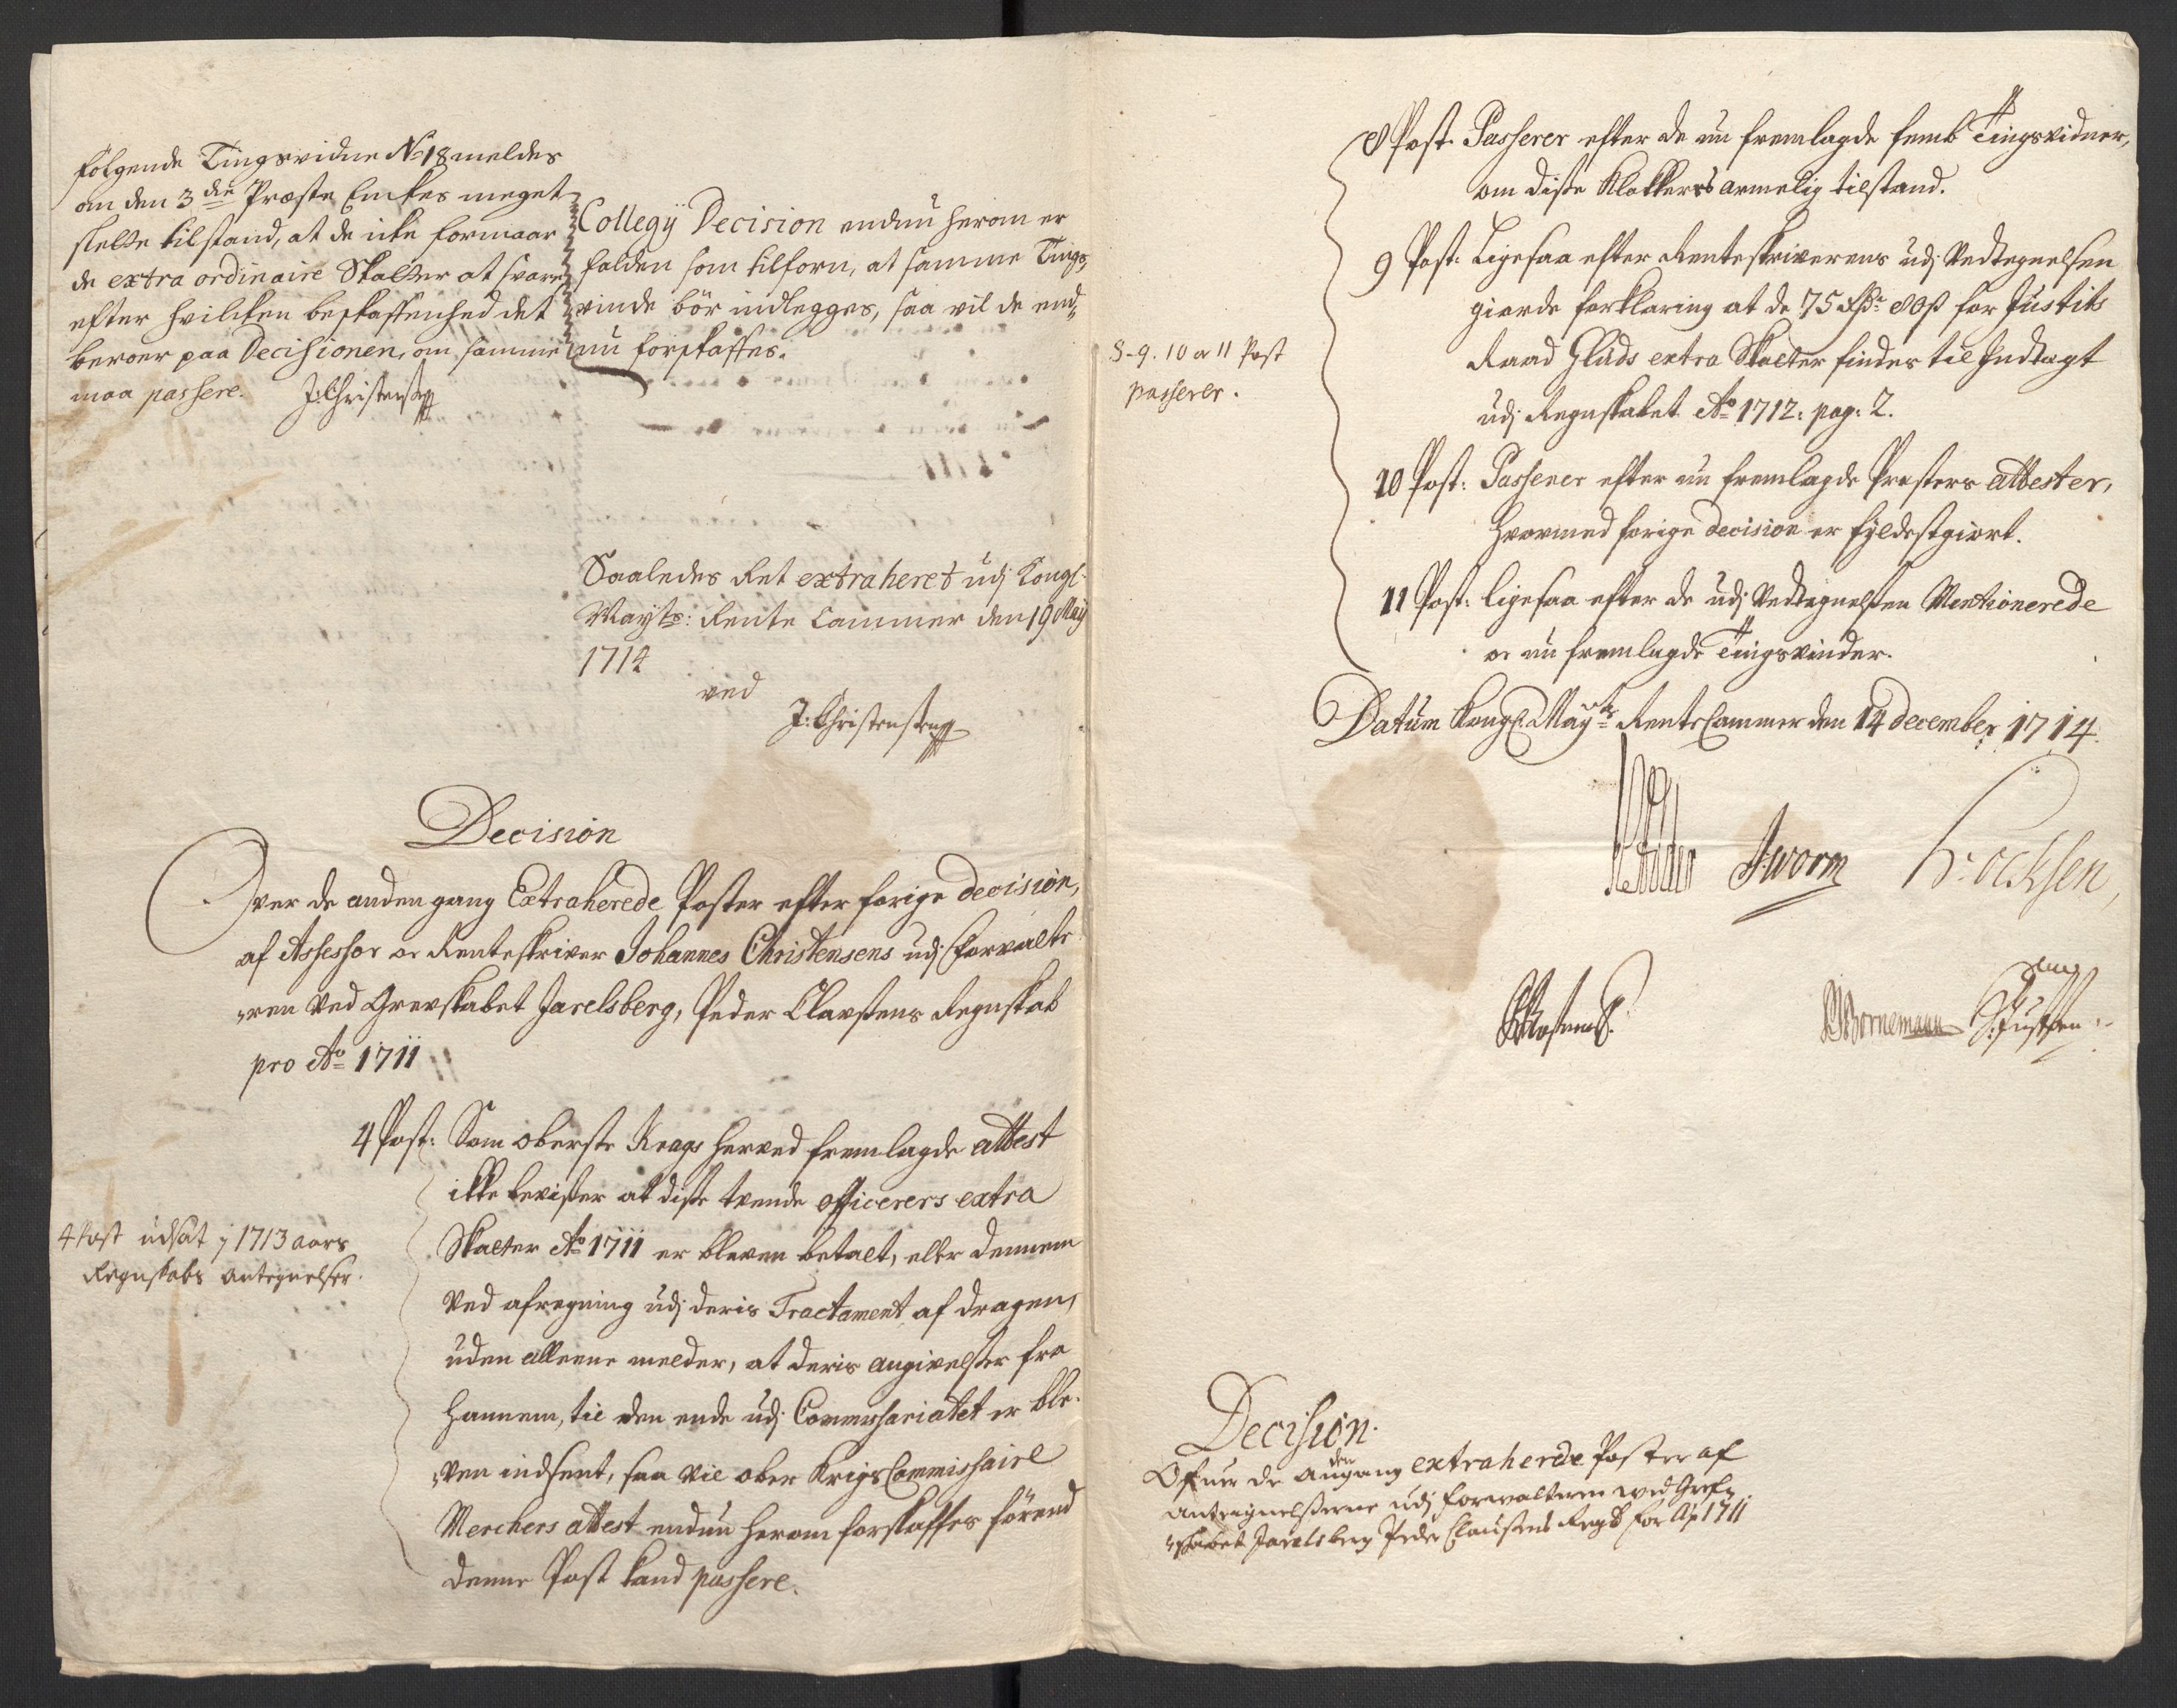 følgende Tingsvidne No 18 meldes
om den 3die Præste Enckes meget
slette tilstand, at de icke formaar
de extra ordinaire Skatter at svare
efter hvilcken beskaffenhed det
beroer paa Decisionen, om samme
maa passere. J: Christensen
Collegij Decision endnu herom er
falden som tilforn, at samme Tings,,
vinde bör indlegges, saa vil de end,,
nu forskaffes.
Saaledes Ret extraheret udj Kongl:
Mayts: Rente Cammer den 19 Maij
1714
ved
J: Christensen
Decision
Over de anden gang Extraherede Poster efter forige decision,
af Assessor oc Renteskriver Johannes Christensens udj Forvalte
,,ren Ved Grevskabet Jarelsberg, Peder Clausens Regnskab
pro Ao 1711
4 Post: Som oberste Krags herved fremlagde attest
ikke beviser at disse tvende officerers extra
Skatter Ao 1711 er bleven betalt, eller dennem
Ved afregning udj deris Tractament af dragen,
uden alleene melder, at deris angivelser fra
hannem, til den ende udj Commissariatet er ble,,
,,ven indsent, saa vil ober KrigsCommissaire
Merchers attest endnu herom forskaffes förend
denne Post kand passere.
4 Post udsat j 1713 aars
Regnskabs Antegnelser.
8 Post Passerer efter de nu fremlagde femb Tingsvidner,
om disse Klokkeres armelig tilstand.
9 Post: Ligesaa efter Renteskriverens udj Vedtegnelsen
giorde forklaring at de 75 Rdr 80 s for Justits
Raad Gluds extra Skatter findes til Indtegt
udj Regnskabet Ao 1712: pag: 2.
10 Post: Passerer efter nu fremlagde Præsters attester,
hvormed forige decision er fyldestgiort.
11 Post: Ligesaa efter de udj Vedtegnelsen Mentionerede
oc nu fremlagde Tingsvinder.
8-9. 10 oc 11 Post
passerer.
Datum Kongl. Mayts RenteCammer den 14 december 1714.
Worm
Bornemann
Decision.
Ofuer de anden gang extraherede Poster af
Antegnelserne udj forvalteren ved Gref,,
,,skabet Jarelsberg Peder Clausens Regsk for Ao 1711